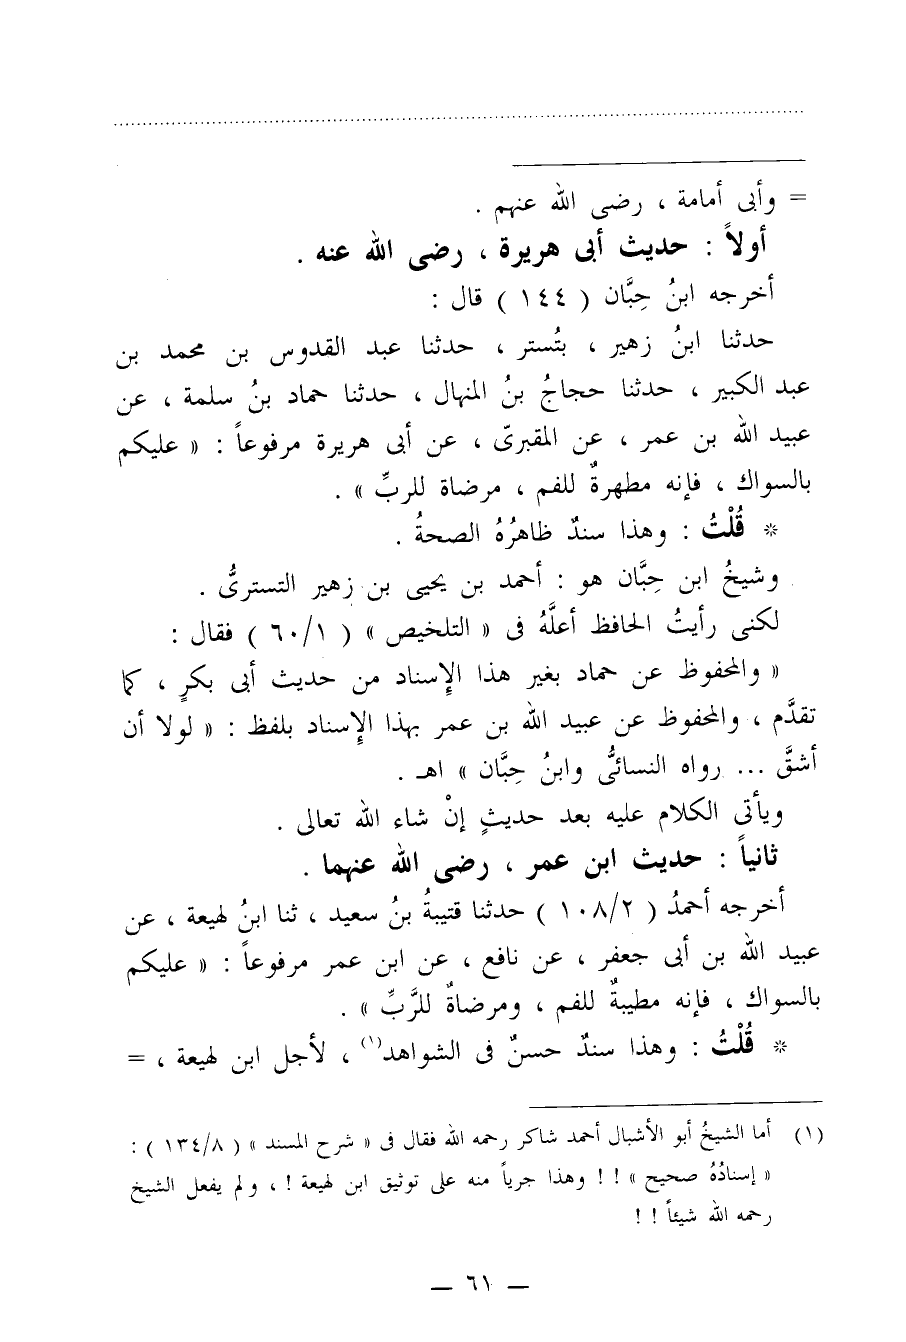 = وأبى أمامة ، رضى الله عنهم .
أولاً : حديث أبى هريرة ، رضى الله عنه .
أخرجه ابنُ حِبَّان ( ١٤٤ ) قال :
حدثنا ابنُ زهير ، بتُستر ، حدثنا عبد القدوس بن محمد بن
عبد الكبير ، حدثنا حجاجُ بنُ المنهال ، حدثنا حماد بنُ سلمة ، عن
عبيد الله بن عمر ، عن المقبرىّ ، عن أبى هريرة مرفوعاً : « عليكم
بالسواك ، فإنه مطهرةٌ للفم ، مرضاة للربِّ » .
* قُلْتُ : وهذا سندٌ ظاهرُهُ الصحةُ .
وشيخُ ابن حِبَّان هو : أحمد بن يحيى بن زهير التسترىُّ .
لكنى رأيتُ الحافظ أعلَّهُ فى « التلخيص » ( ٦٠/١ ) فقال :
« والمحفوظ عن حماد بغير هذا الإسناد من حديث أبى بكرٍ ، كما
تقدَّم ، والمحفوظ عن عبيد الله بن عمر بهذا الإسناد بلفظ : « لولا أن
أشقَّ ... رواه النسائىُّ وابنُ حِبَّان » اهـ .
ويأتى الكلام عليه بعد حديثٍ إنْ شاء الله تعالى .
ثانياً : حديث ابن عمر ، رضى الله عنهما .
أخرجه أحمدُ ( ١٠٨/٢ ) حدثنا قتيبةُ بنُ سعيد ، ثنا ابنُ لهيعة ، عن
عبيد الله بن أبى جعفر ، عن نافع ، عن ابن عمر مرفوعاً : « عليكم
بالسواك ، فإنه مطيبةٌ للفم ، ومرضاةٌ للرَّبِّ » .
* قُلْتُ : وهذا سندٌ حسنٌ فى الشواهد(١) ، لأجل ابن لهيعة ، =
(١) أما الشيخُ أبو الأشبال أحمد شاكر رحمه الله فقال فى « شرح المسند » ( ١٣٤/٨ ) :
« إسنادُهُ صحيح » ! ! وهذا جرياً منه على توثيق ابن لهيعة ! ، ولم يفعل الشيخ
رحمه الله شيئاً ! !
— ٦١ —